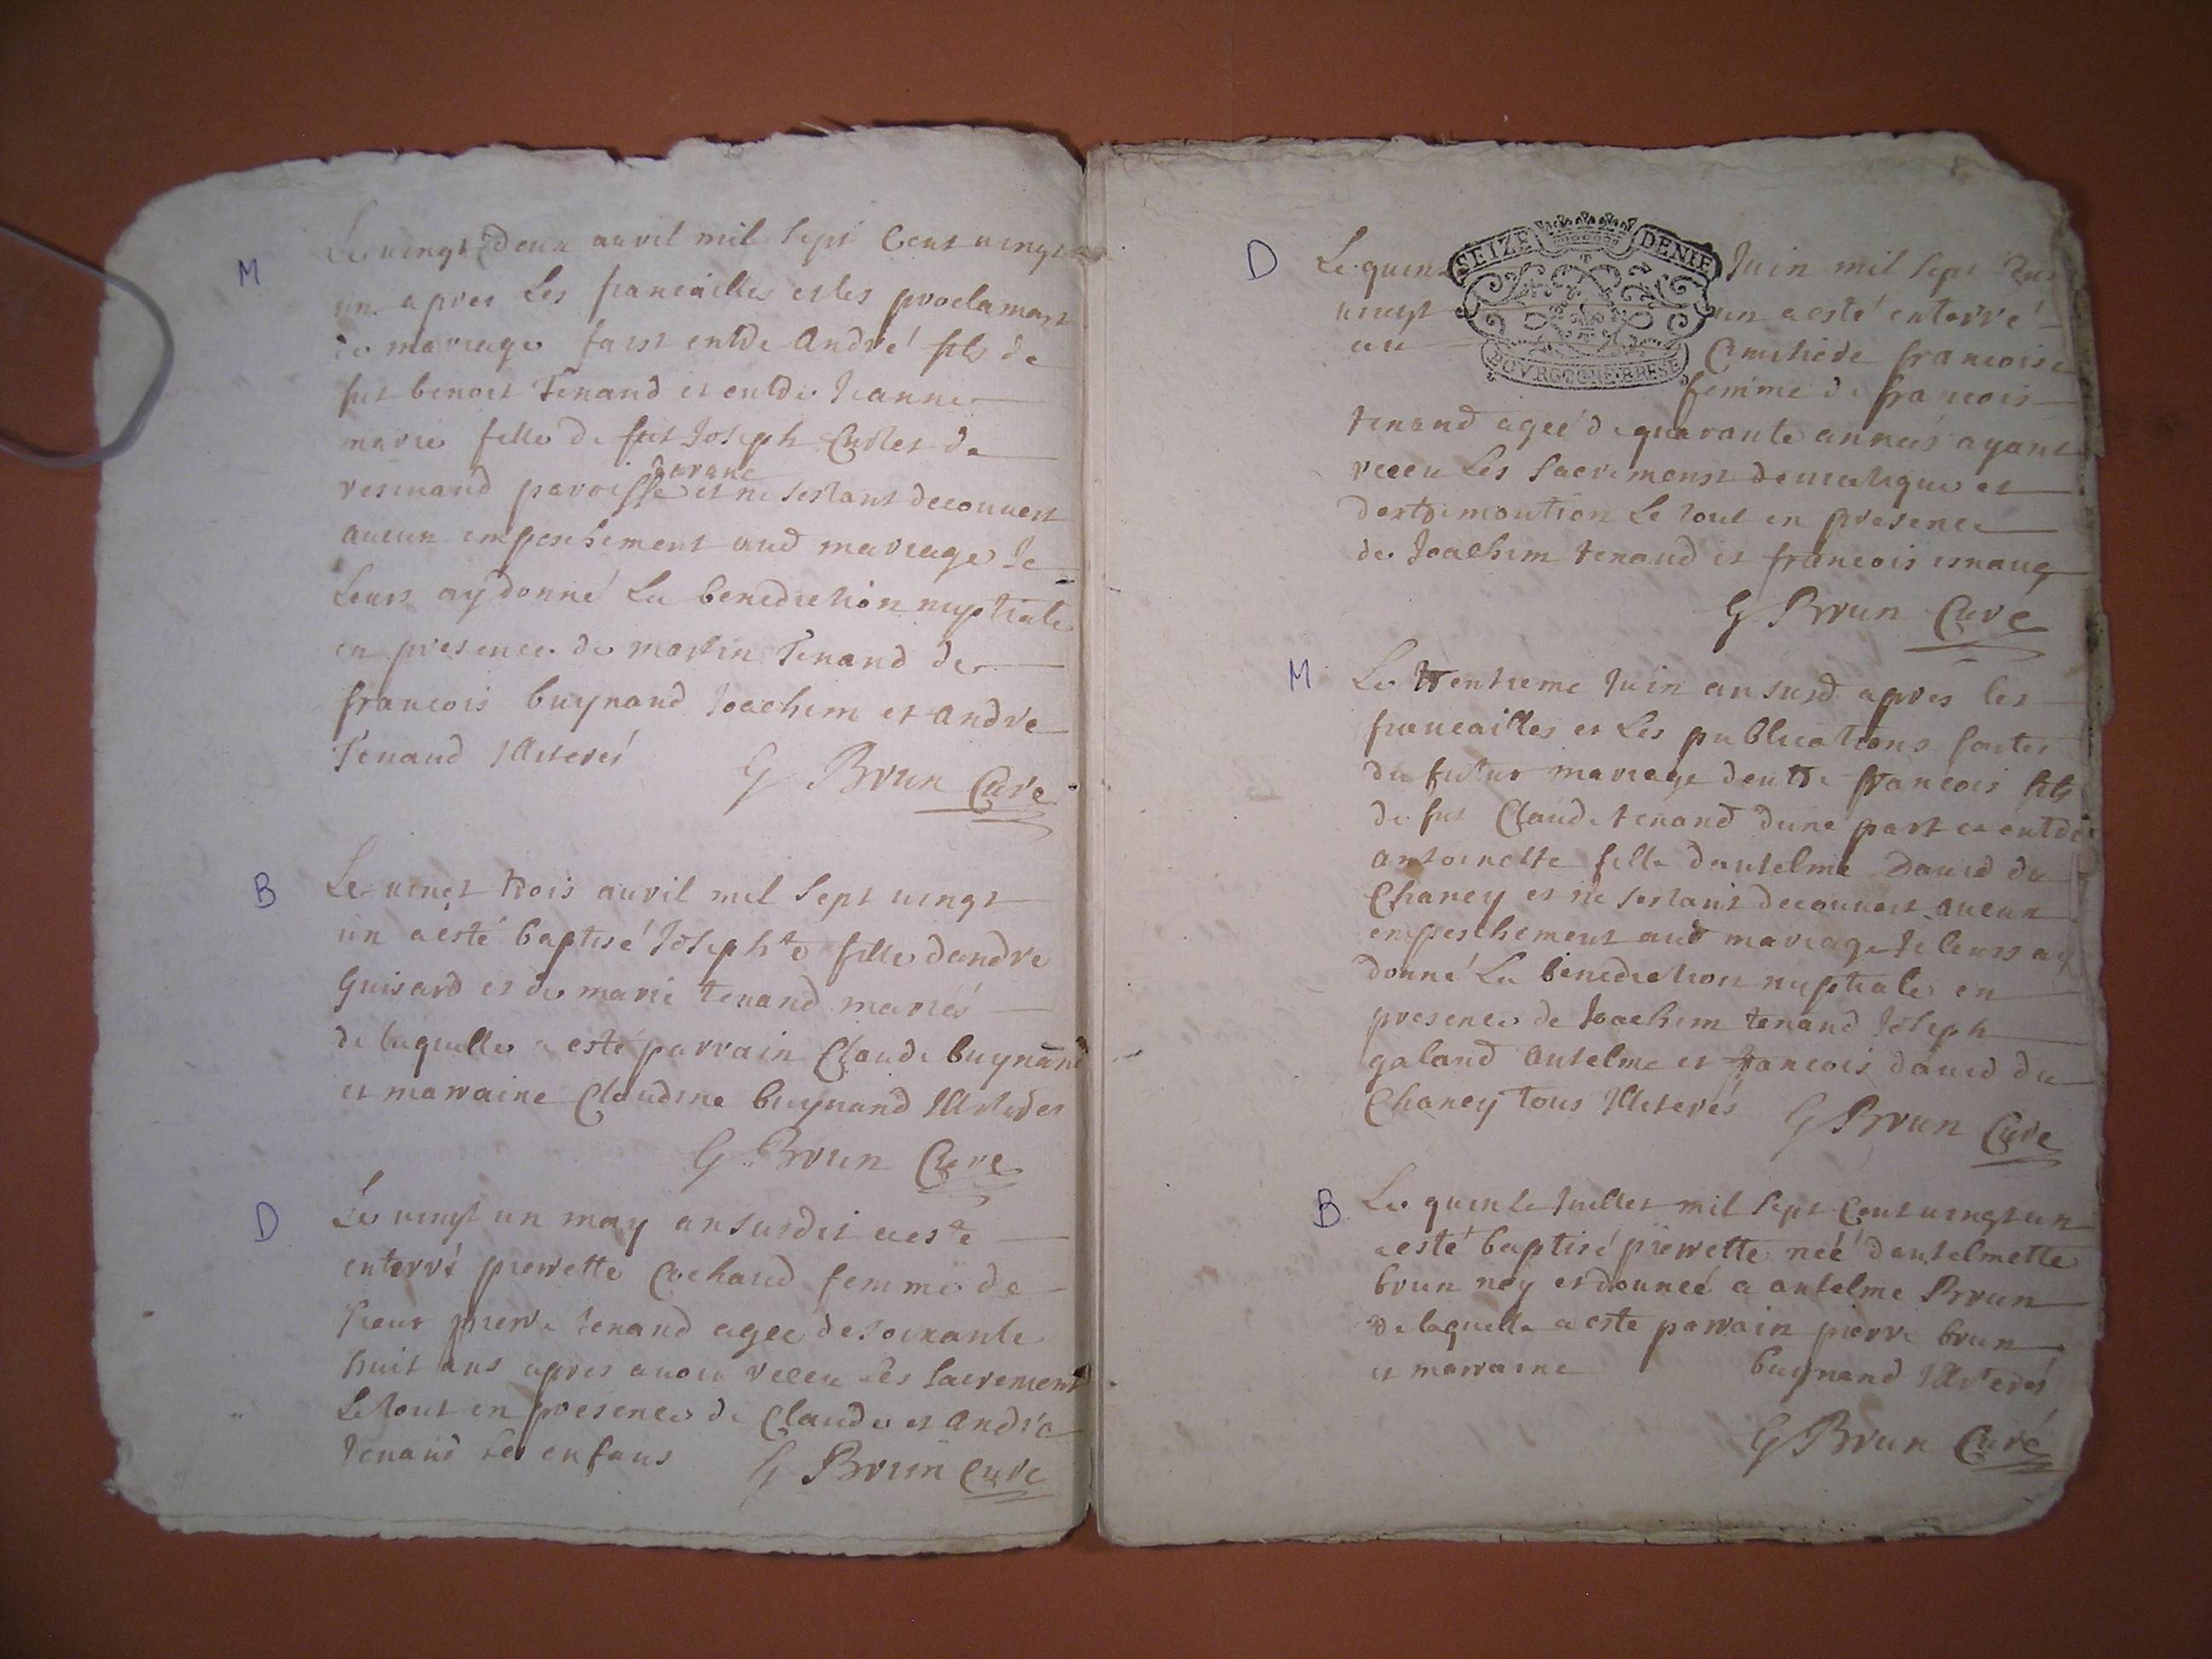 M
Le vingt deux auril mil sept Cent vingt
un apres Les fiancailles et les proclamaõns
de mariage faist entre André fils de
fut benoit Tenand et entre Jeanne
marie fille de fut Joseph de
paroisse et ne sestant decouuert
aucun empeschement aud mariage Je
Leurs ay donné La benediction nuptiale
en presence de martin Tenand de
francois buynand Joachim et andre
Tenand Illiterés
G Brun Curé
B
Le vingt trois auril mil Sept vingt
un a esté baptisé Josephte fille dandre
Guisard et de marie tenand mariés
de laquelle a esté parrain Claude buynand
et marraine Claudine buynand Illiteres
G Brun Curé
D
Le vingt un may an susdit a esté
enterré pierrette Cochand femme de
sieur pierre tenand agee de soixante
huit ans apres auoir receu les sacrement
Le tout en presence de Claude et andré
tenand ses enfans
G Brun Curé
D
SEIZE DENIE
BOVRGOGNE BRESE
Le quinze Juin mil sept
vingt un a esté enterré
au Cimitiere francoise
femme de francois
tenand ageé de quarante anneés ayant
receu Les Sacremenst et
Le tout en presence
de Joachim tenand et francois
G Brun Curé
M
Le trentieme Juin an susd apres les
fiancailles et Les publications faites
du futur mariage dentre francois fils
de fut Claude tenand dune part et entre
antoinette fille dantelme Dauid du
Chaney et ne sestant decouuert aucun
empeschement aud mariage Je leurs ay
donné La benediction nuptiale en
presence de Joachim tenand Joseph
galand antelme et francois dauid du
Chaney tous Illiterés
G Brun Curé
B
Le quinze Juillet mil Sept Cent vingt un
a esté baptisé pierrette neé dantelmette
brun ney et donneé a antelme Brun
de laquelle a este parrain pierre brun
et marraine buynand Illiterés
G Brun Curé